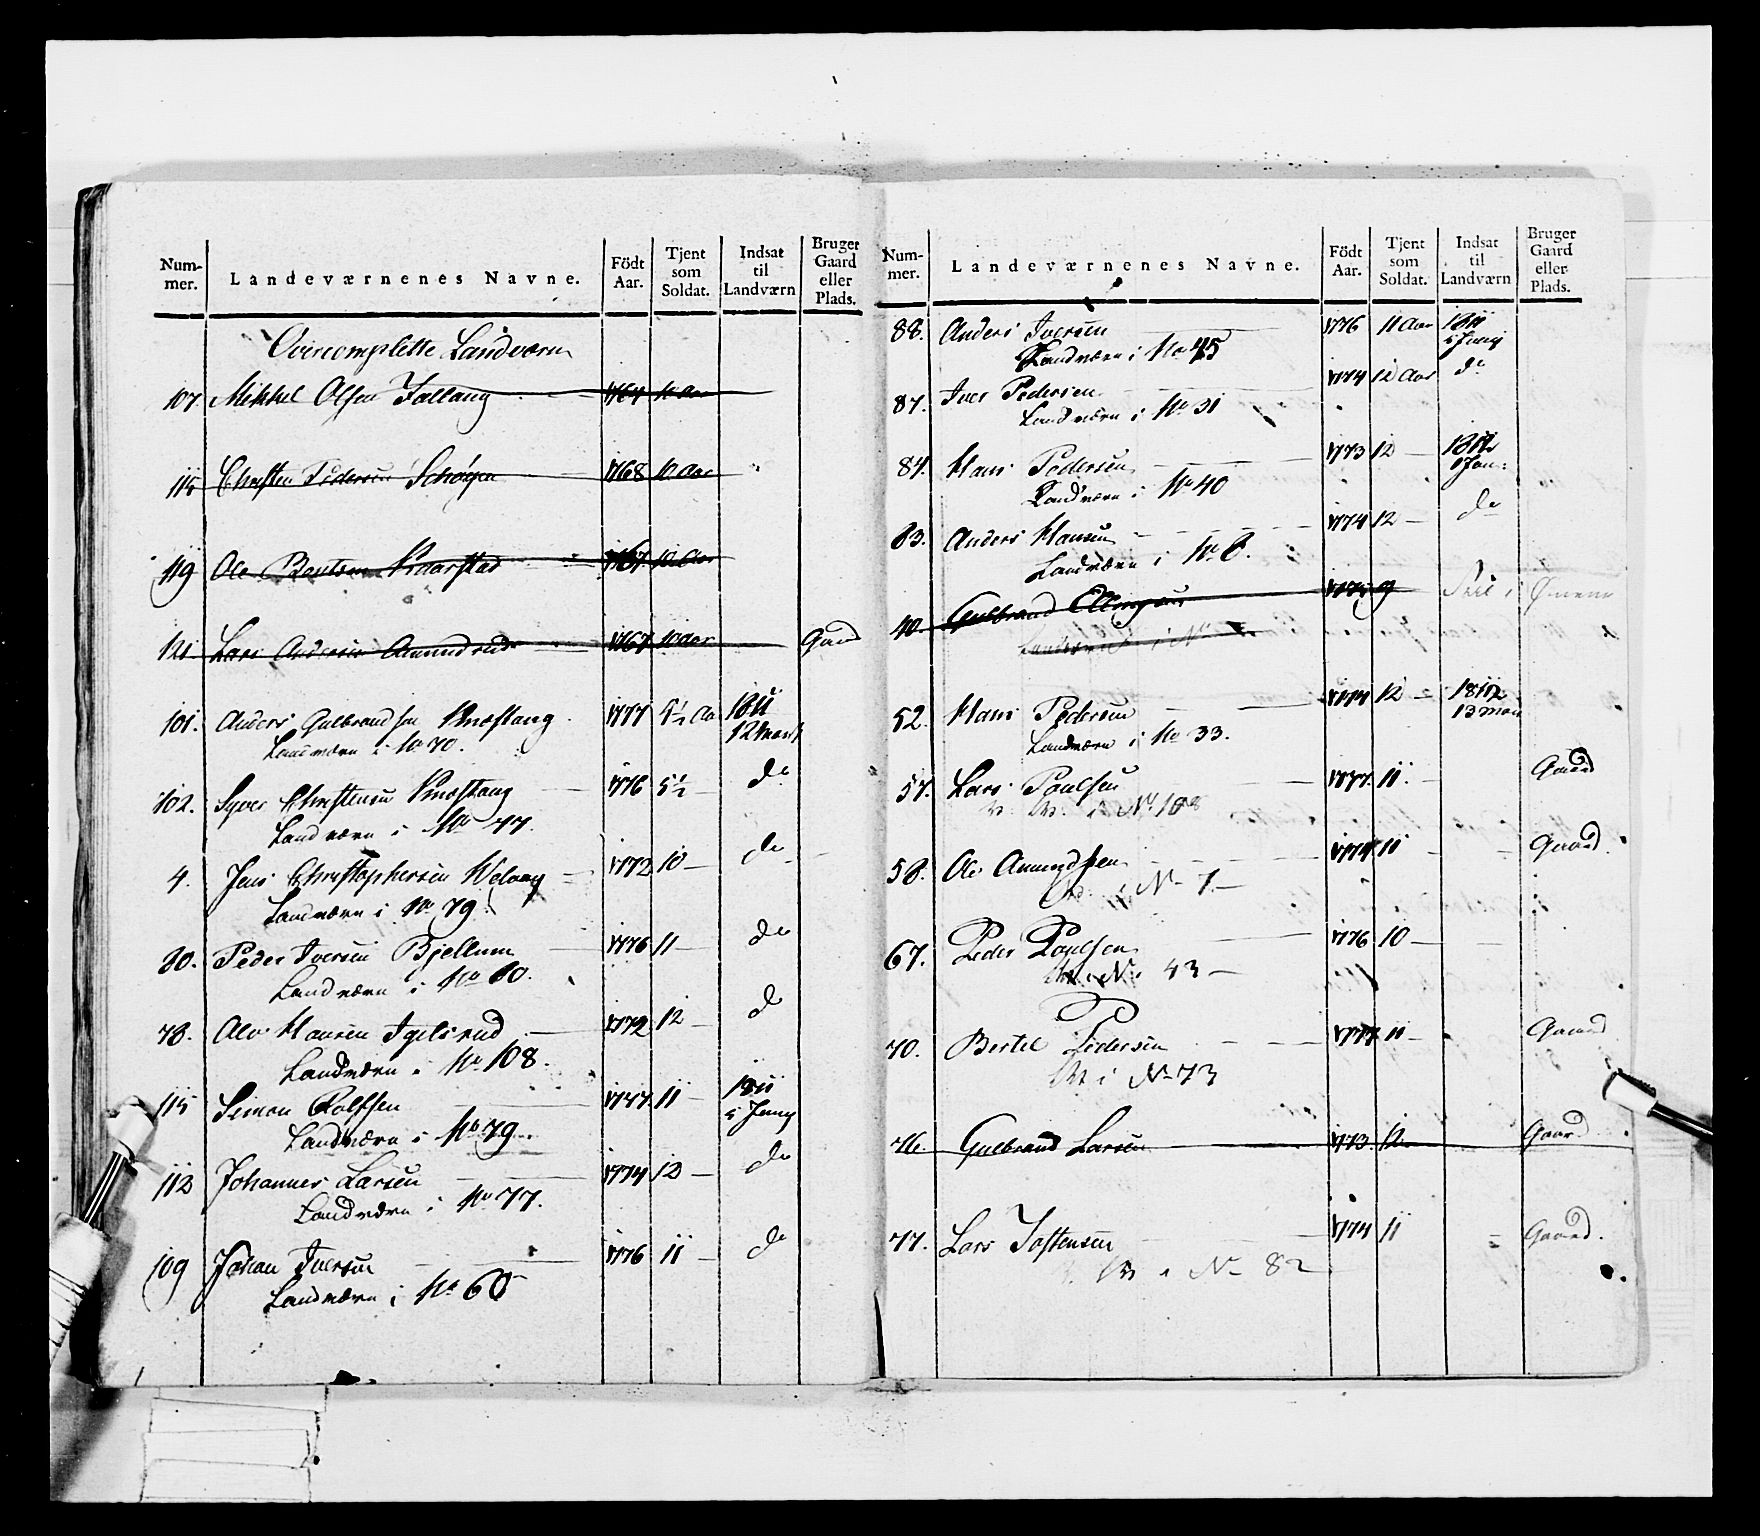 Num-mer. Landeværnenes Navne. Födt Aar. Tjent som Soldat. Indsat til Landværn Bruger Gaard eller Plads.
Overcomplette Landværn
107. Mikkel Olsen 1767 10 Aar
115 Christen Pedersen 1768 10 Aar
119 Ole Bentsen 1767 10 Aar
121 Lars Andersen 1767 10 Aar Gaard
101. Anders Gulbrandsen Knæstang 1777 9½ Aar 1811 12 Mart
Landværn i No 70.
102. Syver Christensen Knæstang 1776 5½ - do
Landværn i No 77.
4. Jens Christophersen 1772 10 - do
Landværn i No 79.
30. Peder Iversen Bjellum 1776 11 - do
Landværn i No 80.
78. Ole Hansen Igelsrud 1772 12 - do
Landværn i No 108.
115 Simon Rolfsen 1777. 11 - 1811 5 Juny
Landværn i No 79.
112 Johannes Larsen 1774 12 - do
Landværn i No 77.
109 Johan Iversen 1776 11 - do
Landværn i No 60
Num-mer. Landeværnenes Navne. Födt Aar. Tjent som Soldat. Indsat til Landværn Bruger Gaard eller Plads.
88. Anders Iversen 1776 11 Aar 1811 5 Juny
Landværn i No 45
87. Iver Pedersen 1774 12 Aar do
Landværn i No 31
84. Hans Pedersen 1773 12 - 1812 Jan:
Landværn i No 40
83. Anders Hansen 1774 12 - do
Landværn i No 6.
40. Gulbrand Ellingsen 9
52. Hans Pedersen 1774 12 - 1812 13 Mart
Landværn i No 33.
57. Lars Poulsen 1777. 11. Gaard
No 108
58. Ole Amundsen 1774 11 Gaard
i No 7.
67. Peder Poulsen 1776 10 -
No 43
70. Bertel Pedersen 1777 11 - Gaard
i No 73
76. Gulbrand Larsen 1773. 12 Gaard
77. Lars Jostensen 1774 11 Gaard.
No 82